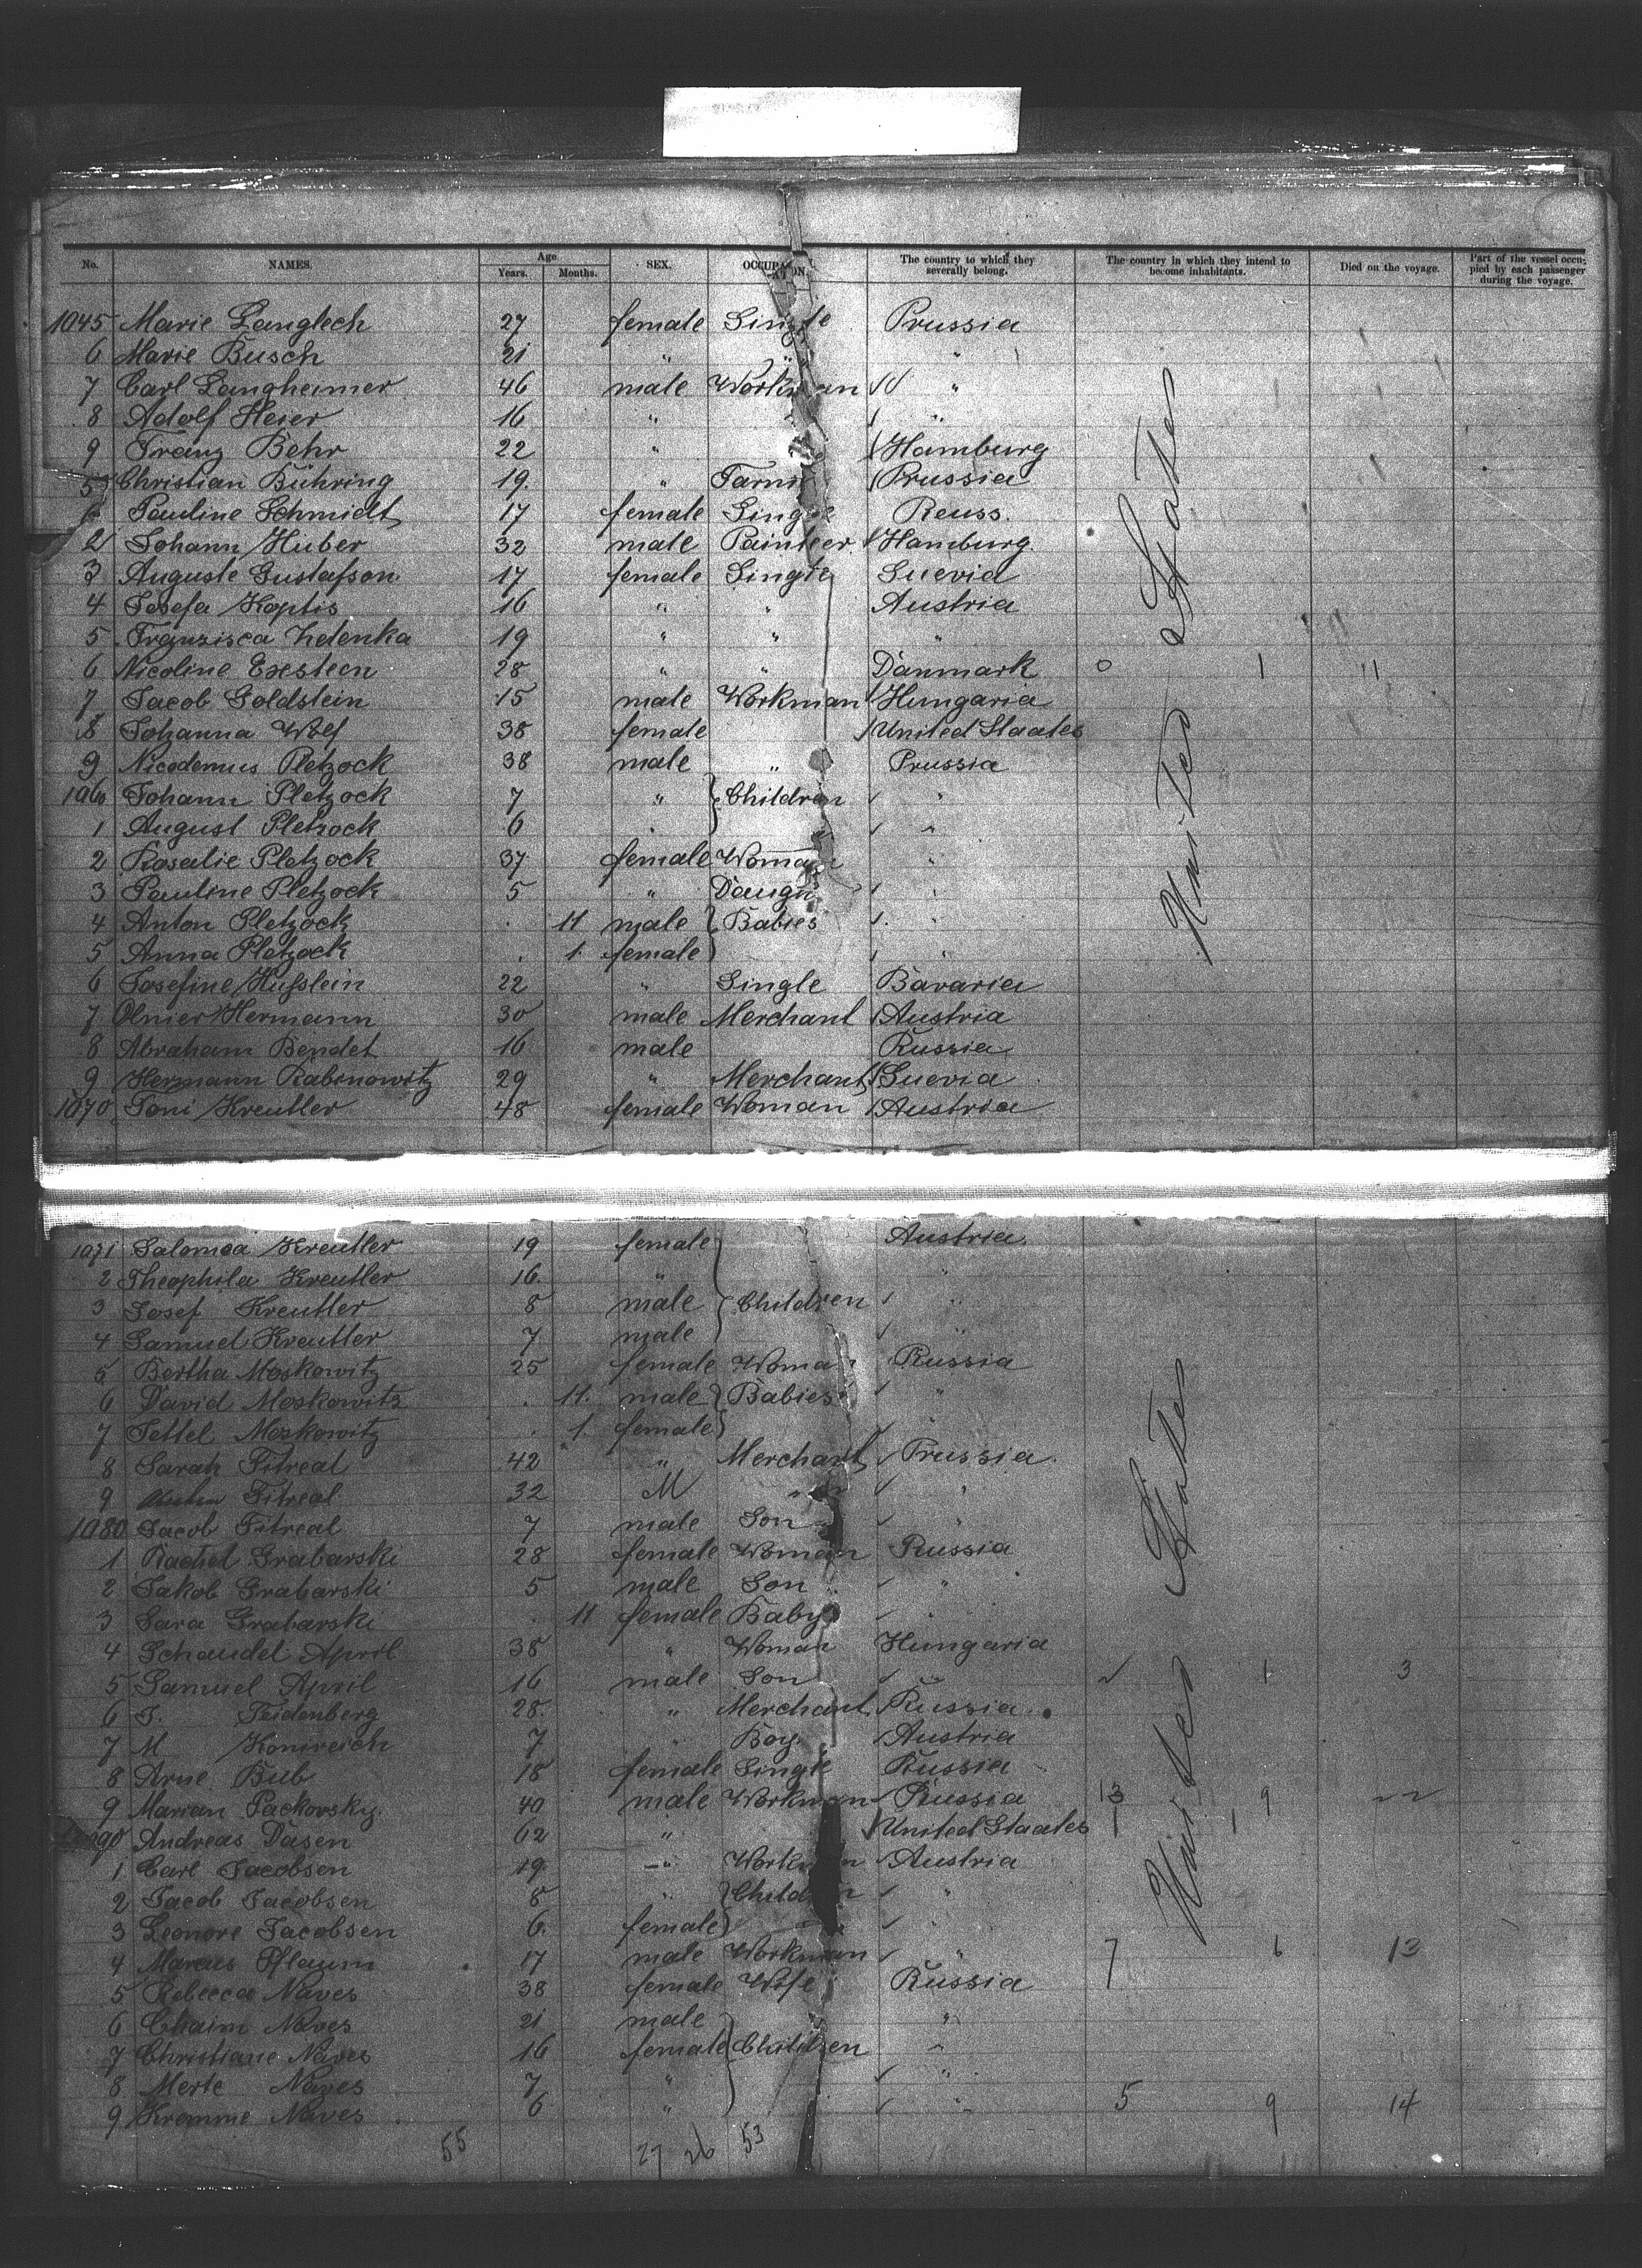 No. NAMES. Age Years. Months. SEX. OCCUPATION. The country to which they severally belong. The country in which they intend to become inhabitants. Died on the voyage. Part of the vessel occupied by each passenger during the voyage.
1045 Marie Langlech 27 female Single Prussia
6 Marie Busch 21 " " "
7 Carl Langheimer 46 male Workman "
8 Adolf Heier 16 " "
9 Franz Behr 22 " Hamburg
Christian Bühring 19 " Prussia
Pauline Schmidt 17 female Single Reuss.
2 Johann Huber 32 male Painteer Hamburg.
3 Auguste Gustafson 17 female Single Suevia
4 Josefa Koptis 16 " " Austria
5 Franzisca Zelenka 19 " " "
6 Nicoline Exesteen 28 " " Danmark 0 1 11
7 Jacob Goldstein 15 male Workman Hungaria
8 Johanna Wolf 38 female United Staates
9 Nicodemus Pletzock 38 male " Prussia
1060 Johann Pletzock 7 " Children "
1 August Pletzock 6 " "
2 Rosalie Pletzock 37 female Woman "
3 Pauline Pletzock 5 " "
4 Anton Pletzock 11 male Babies "
5 Anna Pletzock 1 female "
6 Josefine Hußlein 22 " Single Bavaria
7 Olmier Hermann 30 male Merchant Austria
8 Abraham Bendet 16 male Russia
9 Hermann Rabinowitz 29 " Merchant Suevia
1070 Toni Kreutler 48 female Woman Austria
United States
1071 Salomea Kreutler 19 female Austria
2 Theophila Kreutler 16 " "
3 Josef Kreutler 8 male Children "
4 Samuel Kreutler 7 male "
5 Bertha Moskowitz 25 female Woman Russia
6 David Moskowitz 11 male Babies "
7 Settel Moskowitz 1 female "
8 Sarah Fitreal 42 " Merchant Prussia
9 Fitreal 32 M " "
1080 Jacob Fitreal 7 male Son "
1 Rachel Grabarski 28 female Woman Russia
2 Jakob Grabarski 5 male Son "
3 Sara Grabarski 11 female Baby "
4 Schaudel April 38 " Woman Hungaria
5 Samuel April 16 male Son 1 3
6 J. Feidenberg 28 " Merchant Russia
7 M Konireich 7 " Boy Austria
8 Arne Bub 18 female Single Russia
9 Marian Packovsky 40 male Workman Russia 13 9
1090 Andreas Dasen 62 " United Staates 1 1
1 Carl Jacobsen 19 " Workman Austria
2 Jacob Jacobsen 8 " Children "
3 Leonore Jacobsen 6 female "
4 Marcus Pflaum 17 male Workman " 7 6 13
5 Rebecca Naves 38 female Wife Russia
6 Chaim Naves 21 male "
7 Christiane Naves 16 female Children "
8 Merle Naves 7 " "
9 Kromme Naves 6 " " 5 9 14
United States
55 27 26 53